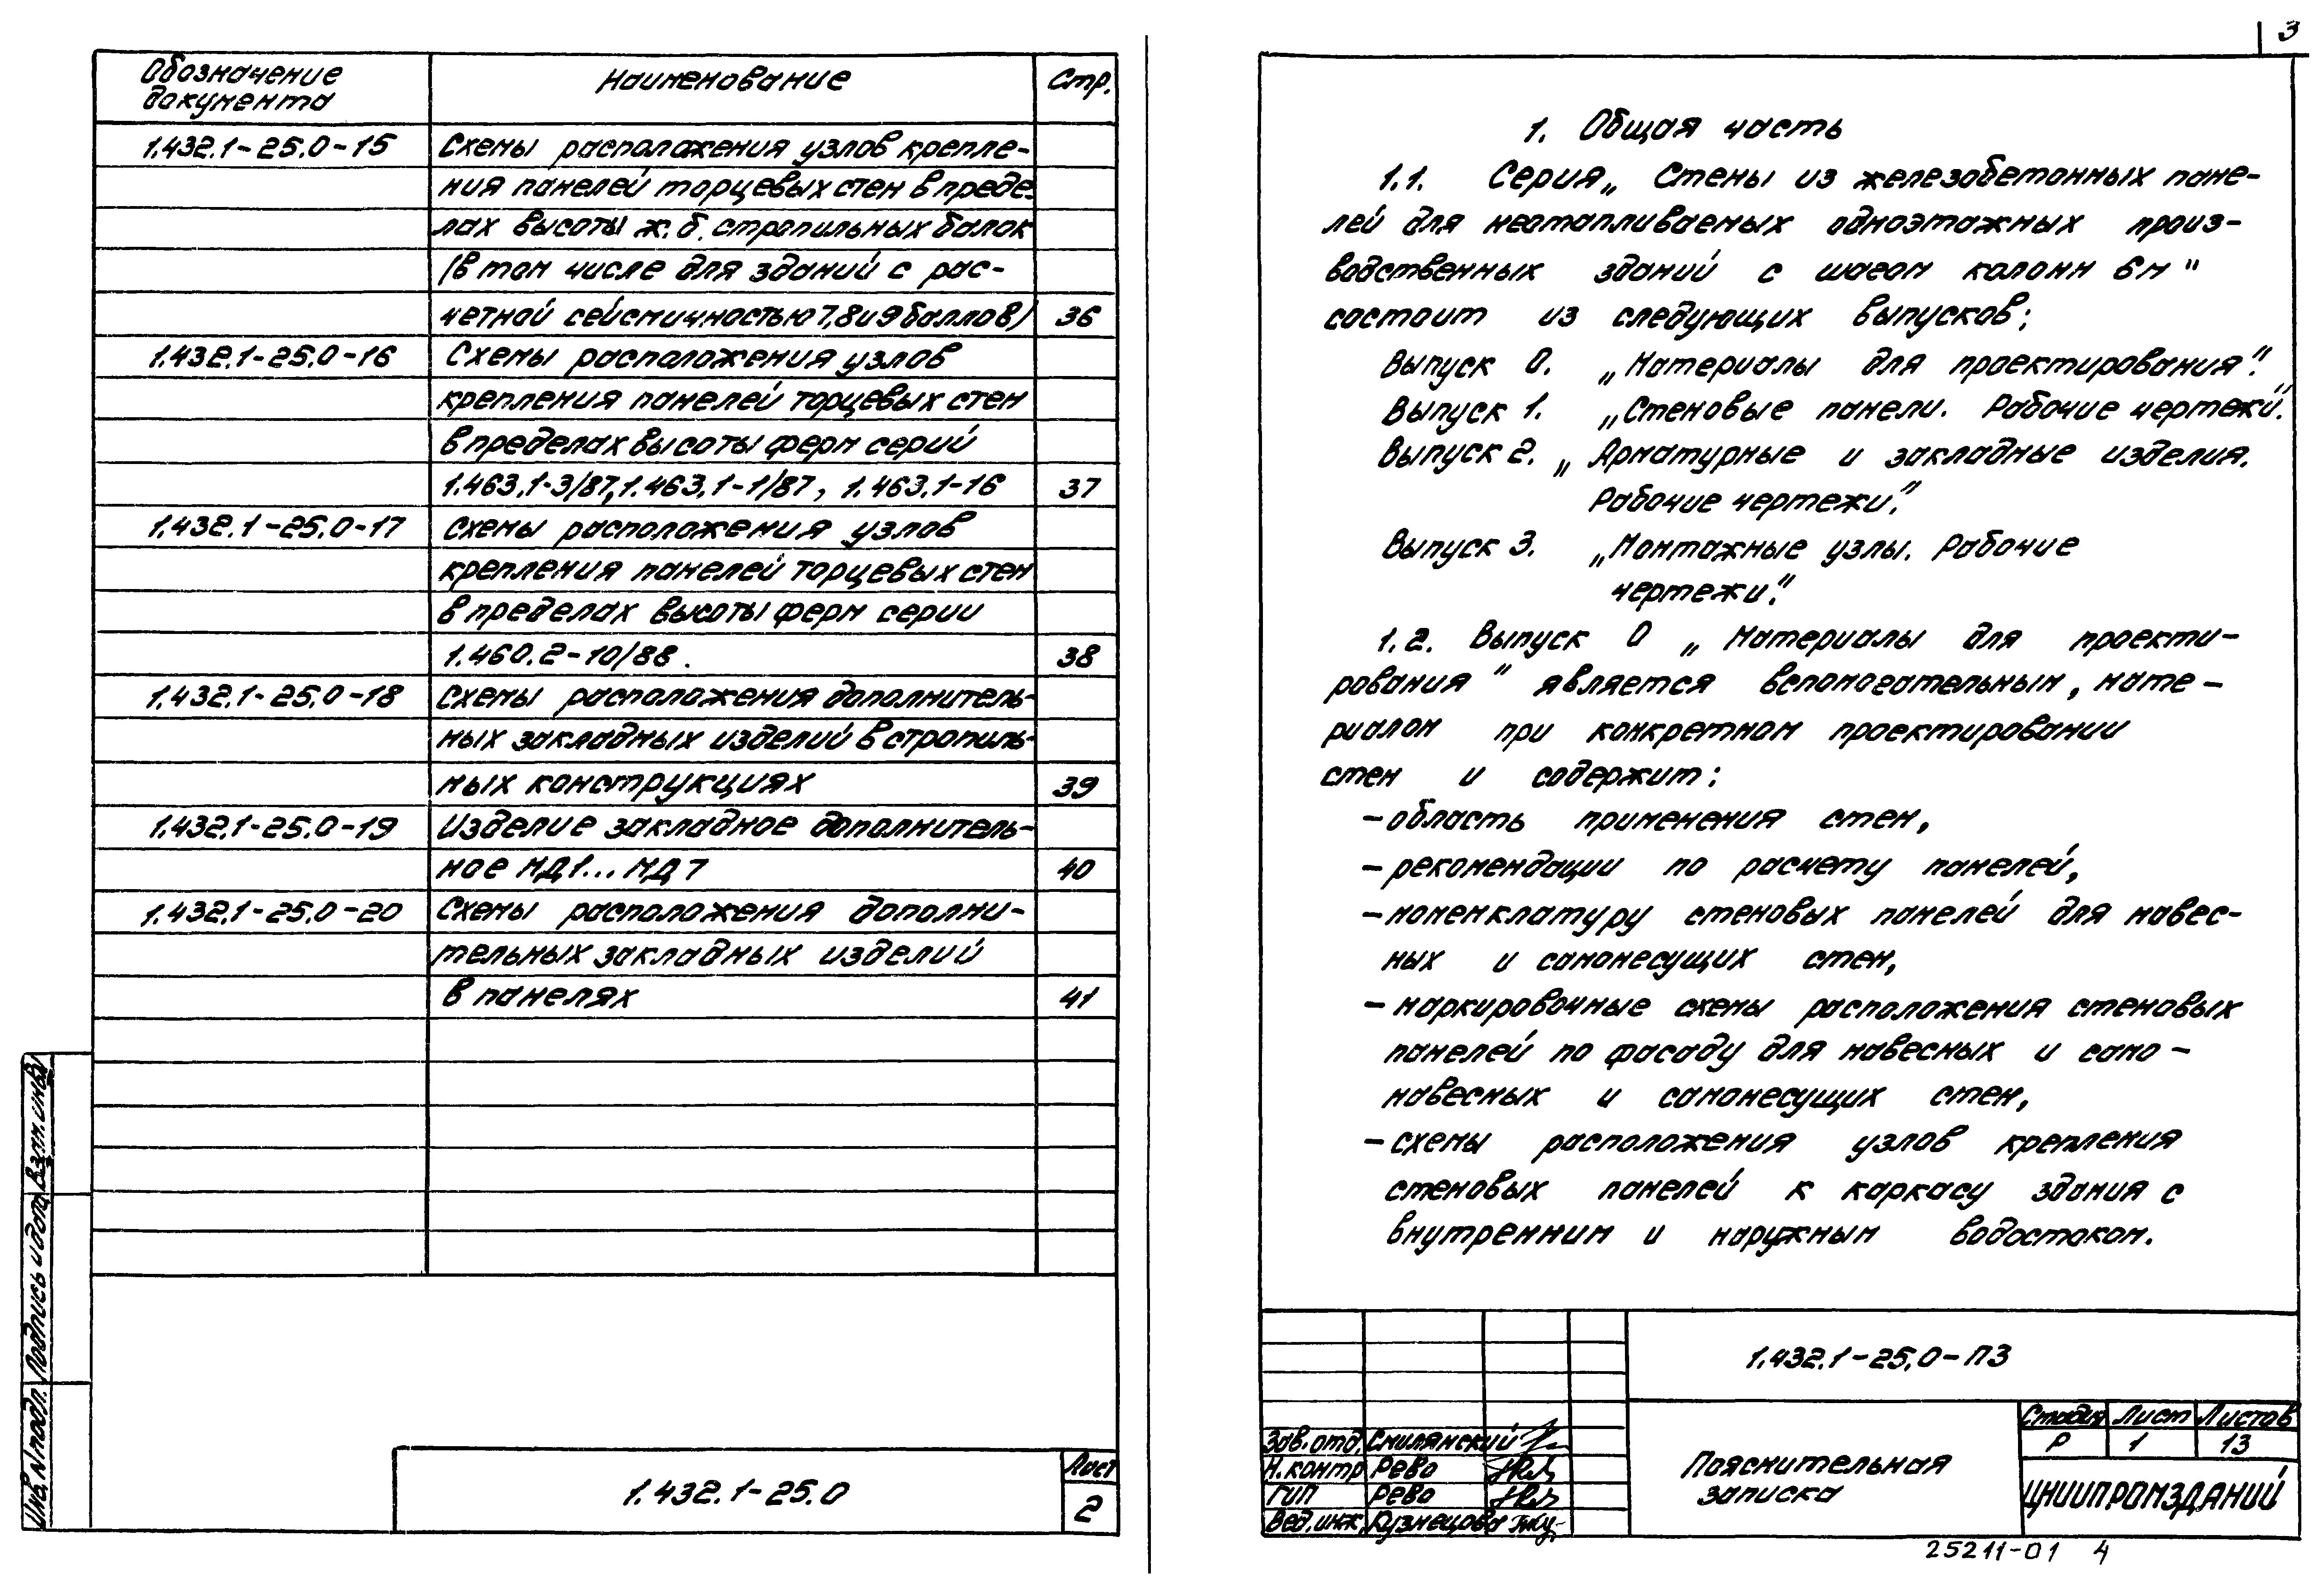 Обозначение документа Наименование Стр.
1.432.1-25.0-15 Схемы расположения узлов крепле-
ния панелей торцевых стен в преде-
лах высоты ж.б. стропильных балок
(в том числе для зданий с рас-
четной сейсмичностью 7,8 и 9 баллов) 36
1.432.1-25.0-16 Схемы расположения узлов
крепления панелей торцевых стен
в пределах высоты ферм серий
1.463.1-3/87, 1.463.1-1/87, 1.463.1-16 37
1.432.1-25.0-17 Схемы расположения узлов
крепления панелей торцевых стен
в пределах высоты ферм серии
1.460.2-10/88. 38
1.432.1-25.0-18 Схемы расположения дополнитель-
ных закладных изделий в стропиль-
ных конструкциях 39
1.432.1-25.0-19 Изделие закладное дополнитель-
ное МД1...МД7 40
1.432.1-25.0-20 Схемы расположения дополни-
тельных закладных изделий
в панелях 41
Инв.№подл. Подпись и дата Взам.инв№
1.432.1-25.0
Лист
2
3
1. Общая часть
1.1. Серия „ Стены из железобетонных пане-
лей для неотапливаемых одноэтажных произ-
водственных зданий с шагом колонн 6м "
состоит из следующих выпусков:
Выпуск 0. „Материалы для проектирования".
Выпуск 1. „Стеновые панели. Рабочие чертежи".
Выпуск 2. „ Арматурные и закладные изделия.
Рабочие чертежи".
Выпуск 3. „Монтажные узлы. Рабочие
чертежи".
1.2. Выпуск 0 „ Материалы для проекти-
рования " является вспомогательным, мате-
риалом при конкретном проектировании
стен и содержит:
- область применения стен,
- рекомендации по расчету панелей,
- номенклатуру стеновых панелей для навес-
ных и самонесущих стен,
- маркировочные схемы расположения стеновых
панелей по фасаду для навесных и само-
навесных и самонесущих стен,
- схемы расположения узлов крепления
стеновых панелей к каркасу здания с
внутренним и наружным водостоком.
1.432.1-25.0-ПЗ
Зав.отд. Смилянский
Н.контр Рево
ГИП Рево
Вед.инж. Кузнецова
Пояснительная
записка
Стадия Лист Листов
Р 1 13
ЦНИИПРОМЗДАНИЙ
25211-01 4